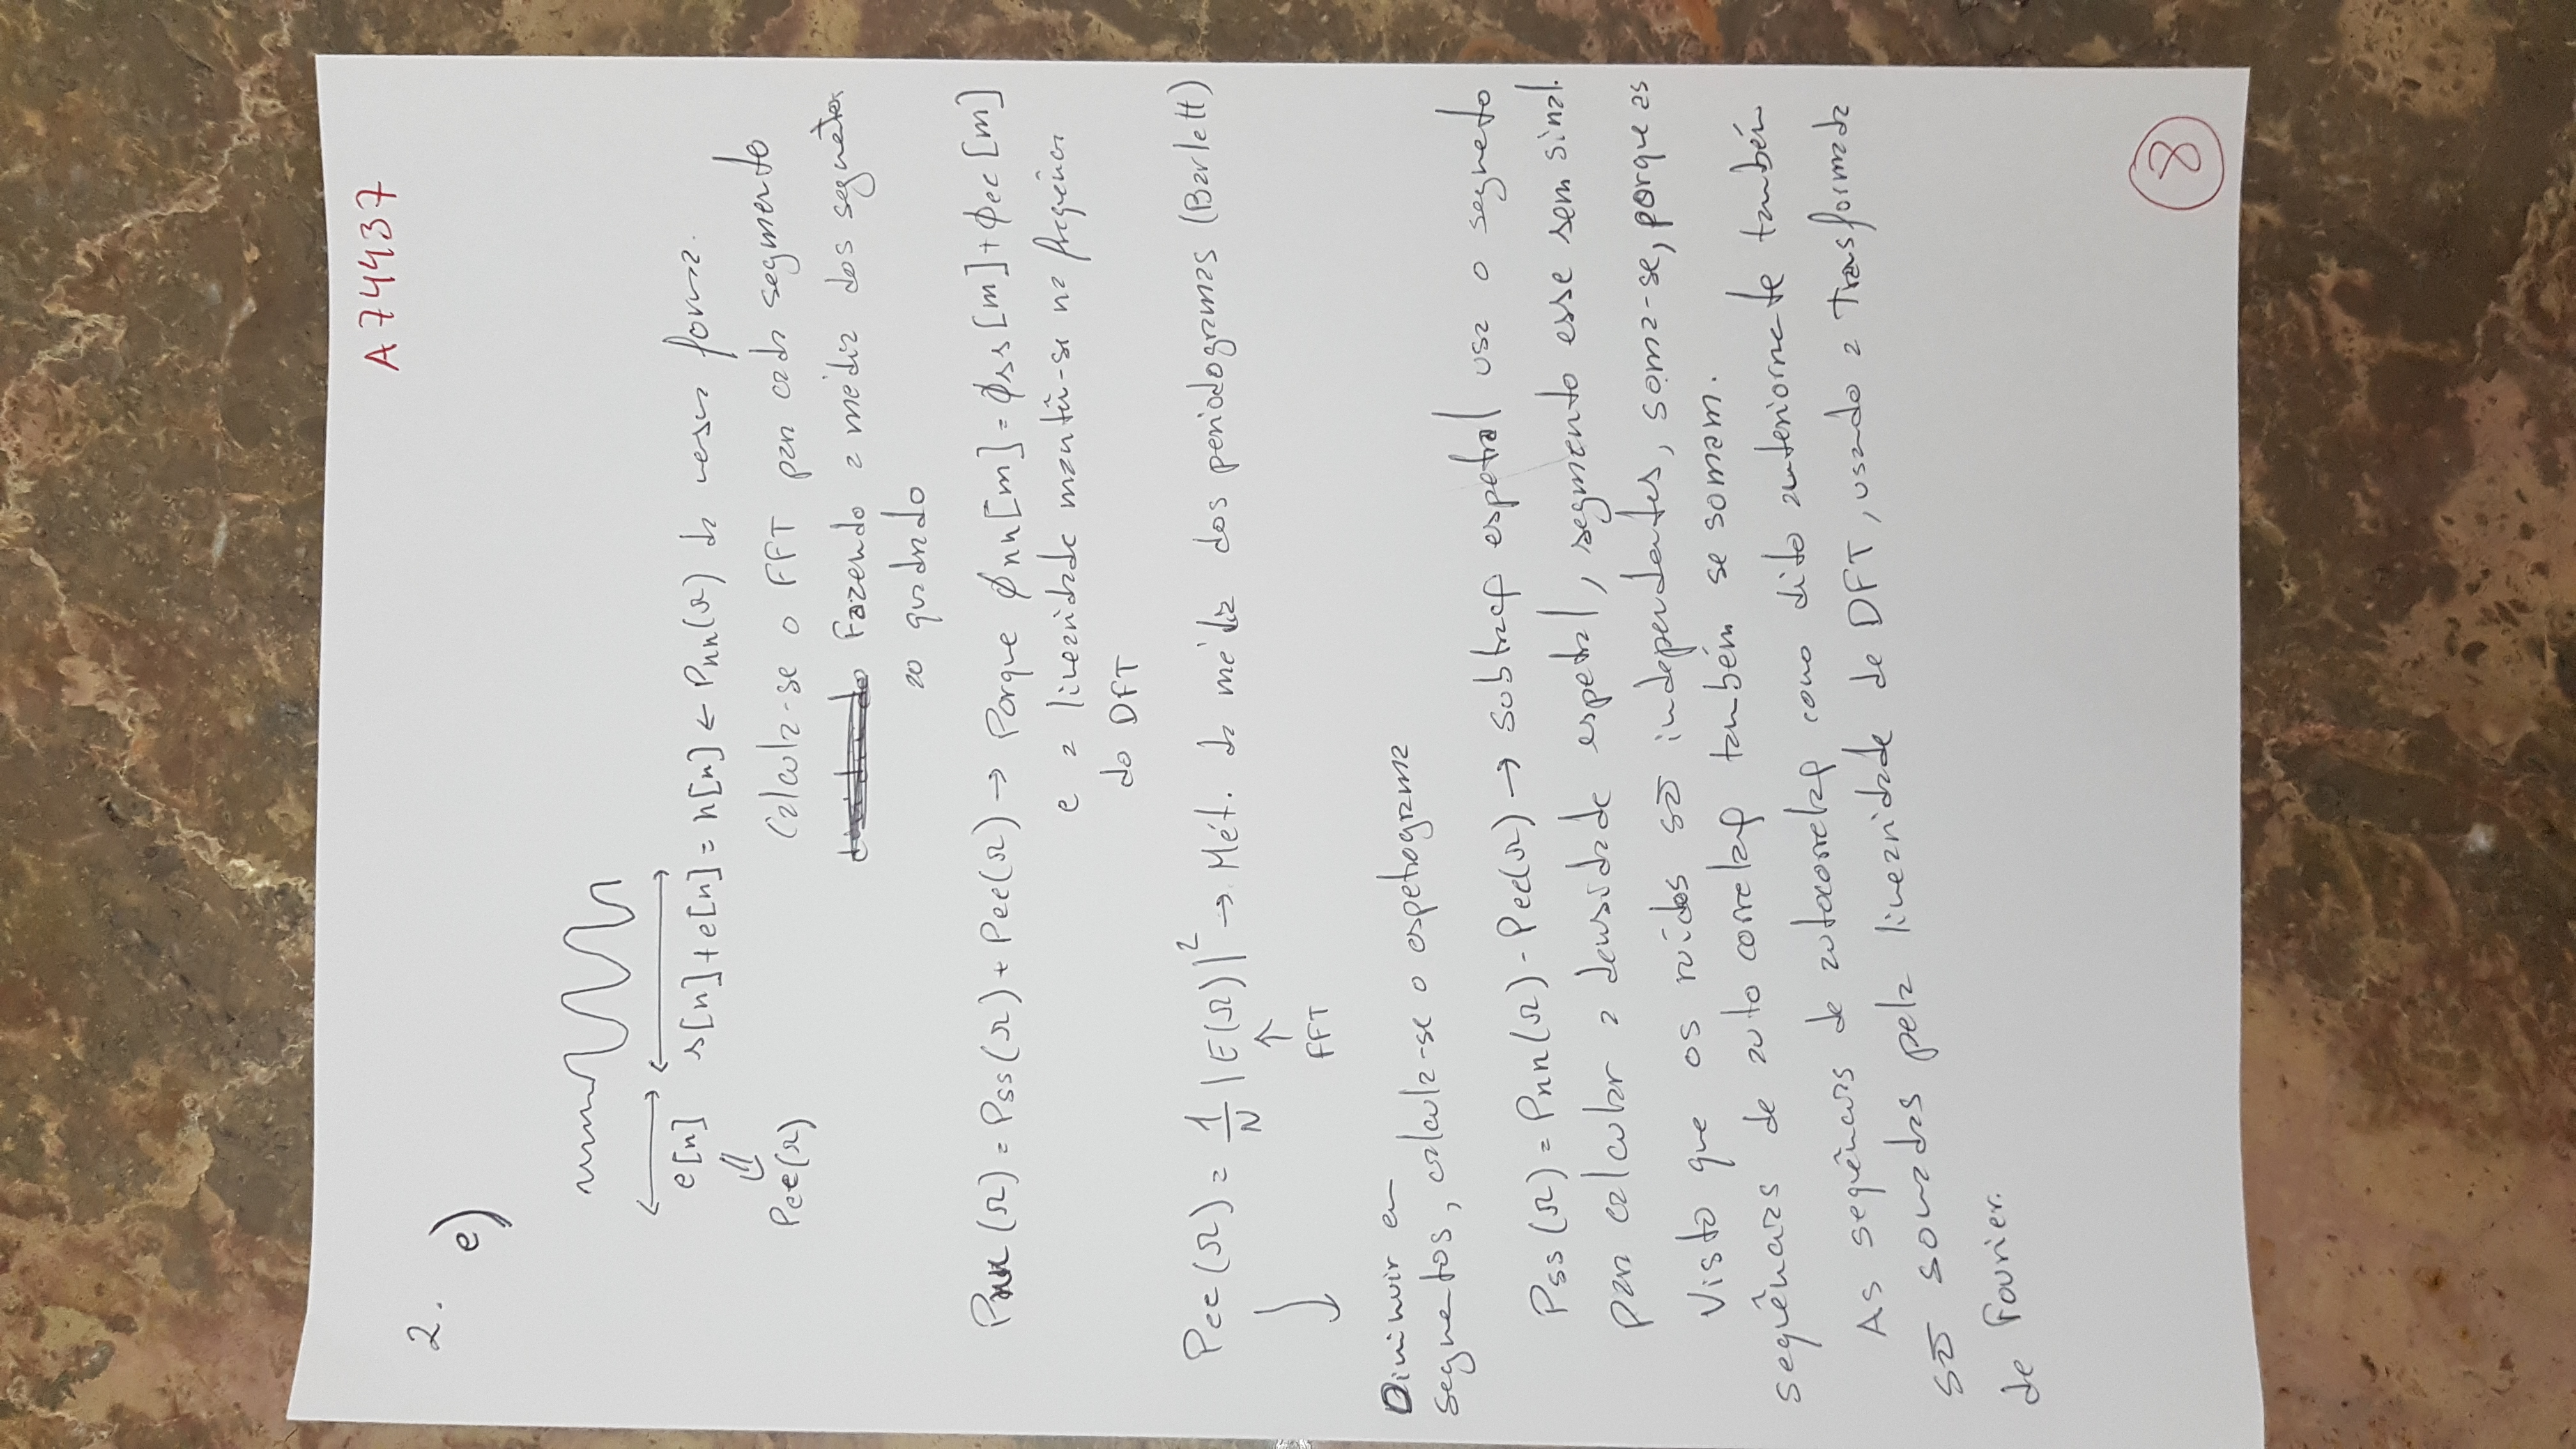 A74437
2.
e)
e[n] s[n]+e[n] = n[n] ← Pnn(Ω) da mesma forma.
⇓
Pee(Ω)
Calcula-se o FFT para cada segmento
Fazendo a média dos segmetos
ao quadrado
Pnn(Ω) = Pss(Ω) + Pee(Ω) → Porque ϕnn[m] = ϕss[m] + ϕee[m]
e a linearidade mantêm-se na frequência
do DFT
Pee(Ω) = 1/N |E(Ω)|² → Mét. da média dos periodogramas (Barlett)
↑
FFT
Diminuir em
segmentos, calcula-se o espetrograma
Pss(Ω) = Pnn(Ω) - Pee(Ω) → subtração espetral usa o segmeto
para calcular a densidade espetral, segmento esse sem sinal.
Visto que os ruídos são independentes, soma-se, porque as
sequências de auto correlação também se somam.
As sequências de autocorrelação como dito anteriormente também
são somadas pela linearidade de DFT, usando a Trasformada
de Fourier.
8